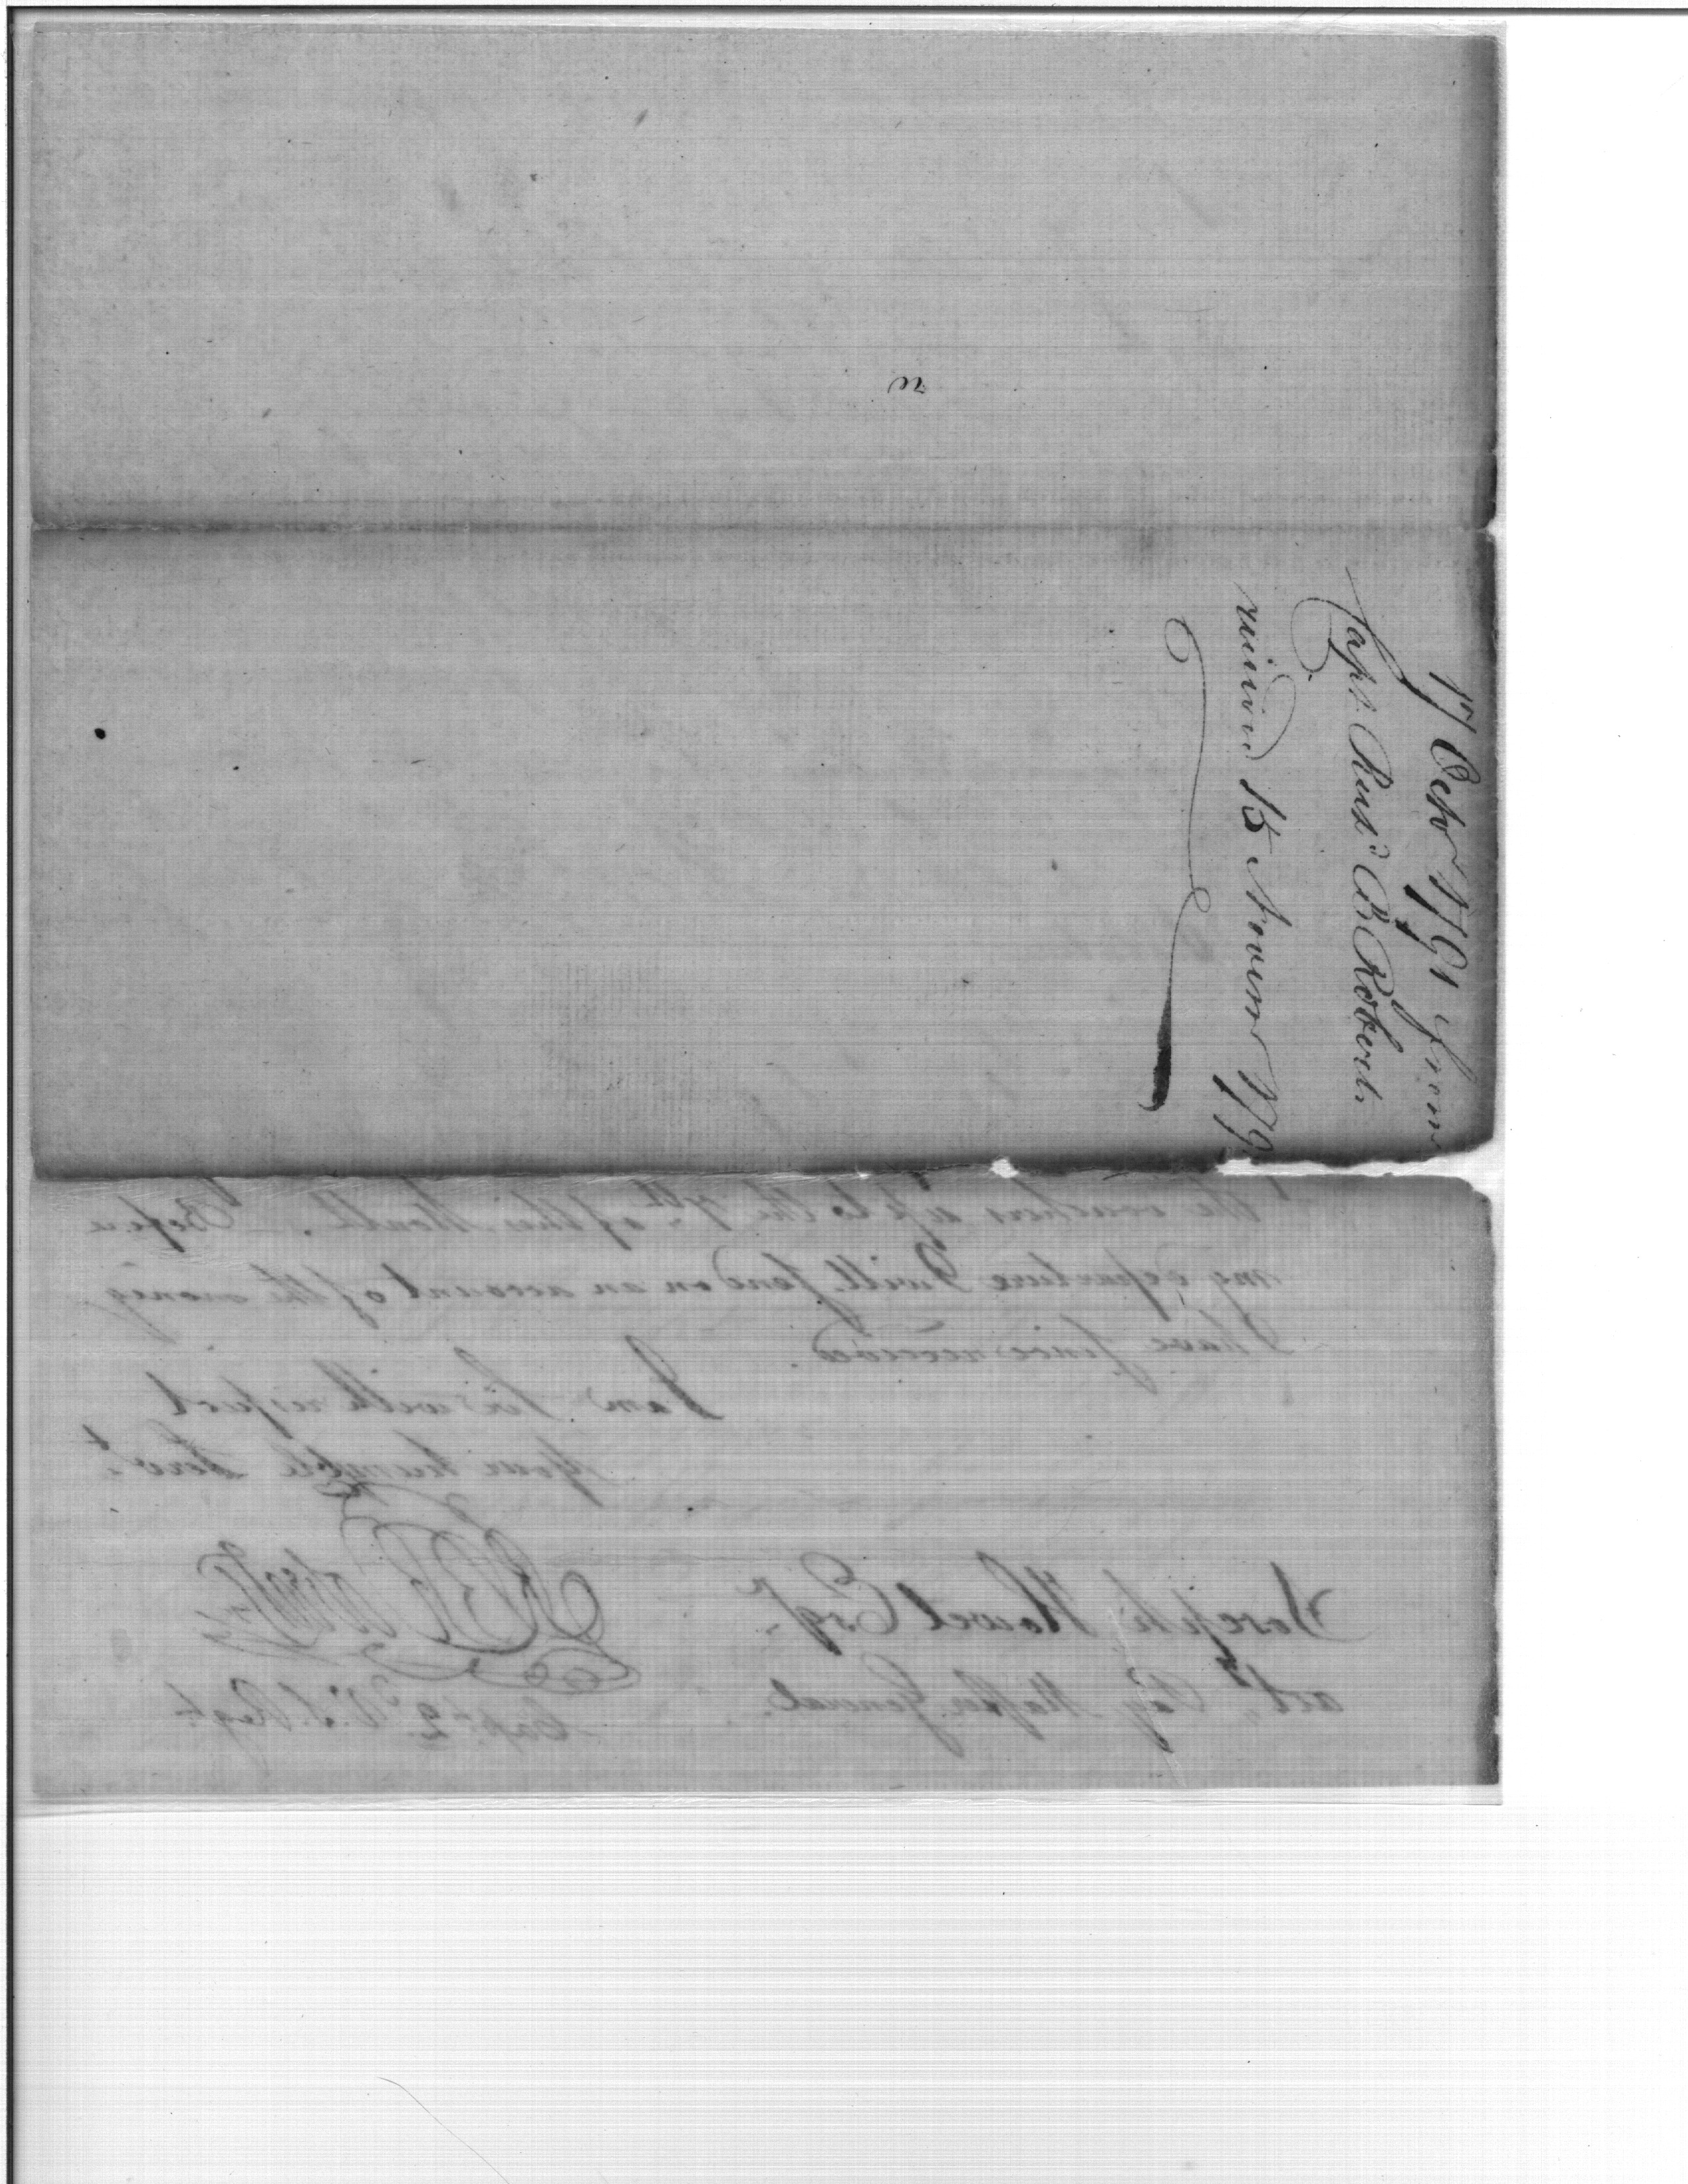 17 Octr 1791 from
Capt. Richd. B Roberts
receivd 15 Novemr 179
the vouchers up to the 7th of this Month. Before
my departure I will send on an account of the money
I have since received.
I am Sir with respect
Your humble Servt.
Joseph Howel Esqr.
actg Pay Master General.
Capt. 2d U.S. Regt.